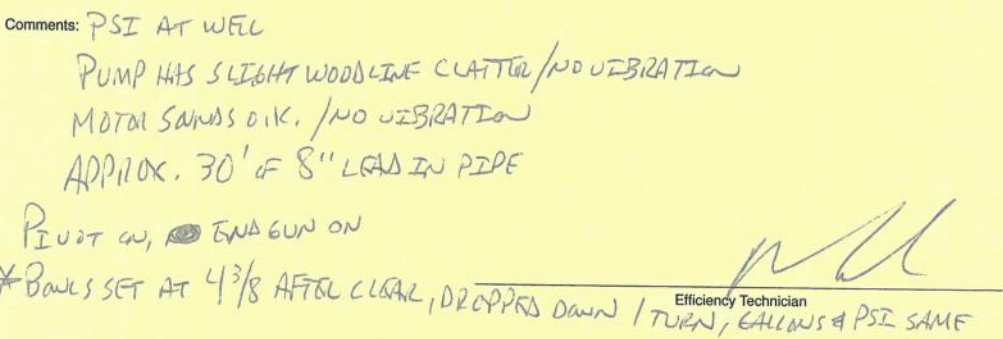 Comments: PSI AT WELL
PUMP HAS SLIGHT WOODLINE CLATTER/NO VIBRATION
MOTOR SOUNDS O.K. /NO VIBRATION
APPROX. 30' OF 8" LEAD IN PIPE
PIVOT ON, END GUN ON
*BOWLS SET AT 4 3/8 AFTER CLEAR, DROPPED DOWN 1 TURN, GALLONS & PSI SAME
Efficiency Technician